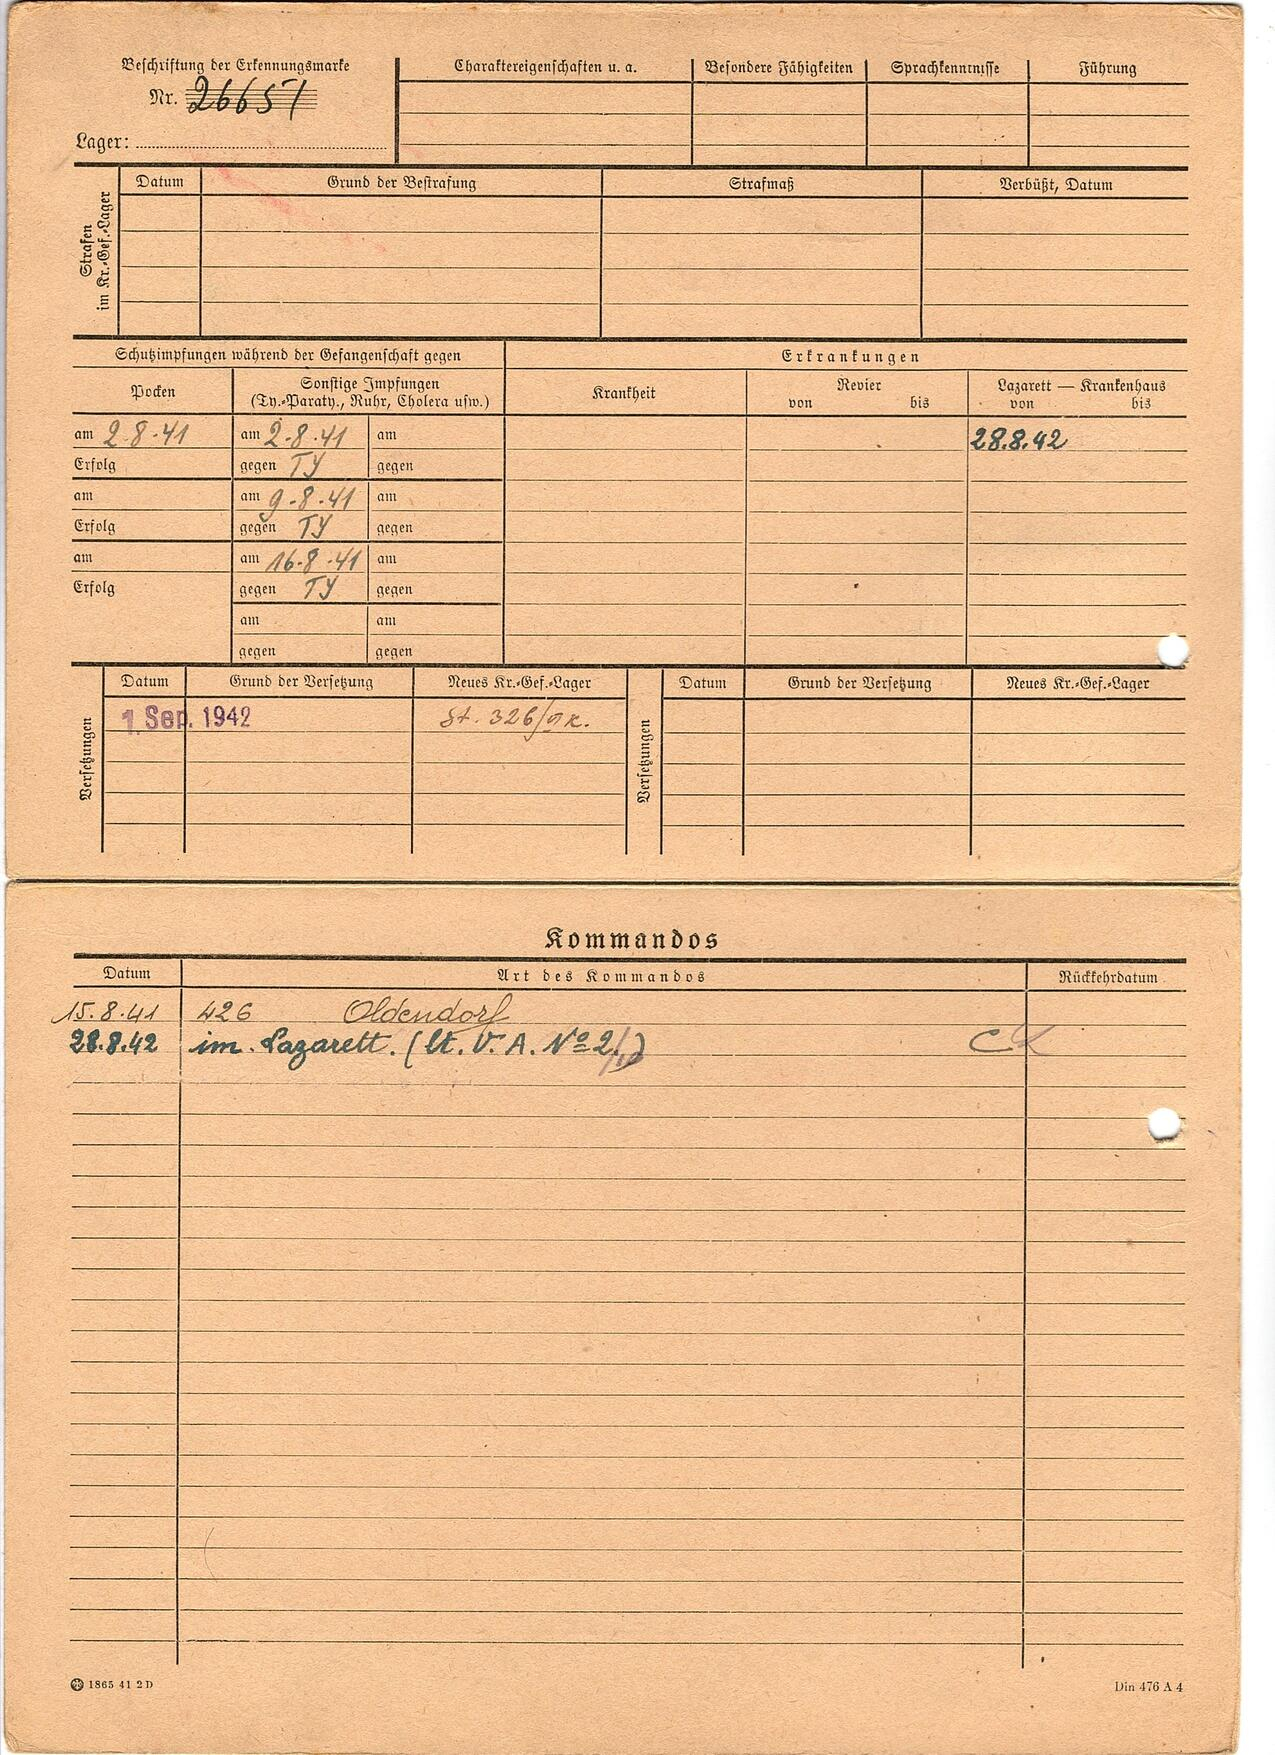 Beschriftung der Erkennungsmarke
Nr. 26651
Lager:
Charaktereigenschaften u. a. Besondere Fähigkeiten Sprachkenntnisse Führung
Strafen
im Kr.-Gef.-Lager
Datum Grund der Bestrafung Strafmaß Verbüßt, Datum
Schutzimpfungen während der Gefangenschaft gegen Erkrankungen
Pocken Sonstige Impfungen
(Ty.-Paraty., Ruhr, Cholera usw.)
Krankheit Revier Lazarett — Krankenhaus
von bis von bis
am 2.8.41 am 2.8.41 am 28.8.42
Erfolg gegen TY gegen
am am 9.8.41 am
Erfolg gegen TY gegen
am am 16.8.41 am
Erfolg gegen TY gegen
am am
gegen gegen
Versetzungen
Datum Grund der Versetzung Neues Kr.-Gef.-Lager
1. Sep. 1942 St. 326
Versetzungen
Datum Grund der Versetzung Neues Kr.-Gef.-Lager
Kommandos
Datum Art des Kommandos Rückkehrdatum
15.8.41 426 Oldendorf
28.8.42 im. Lazarett. (lt. V. A. Nº 2
1865 41 2 D Din 476 A 4